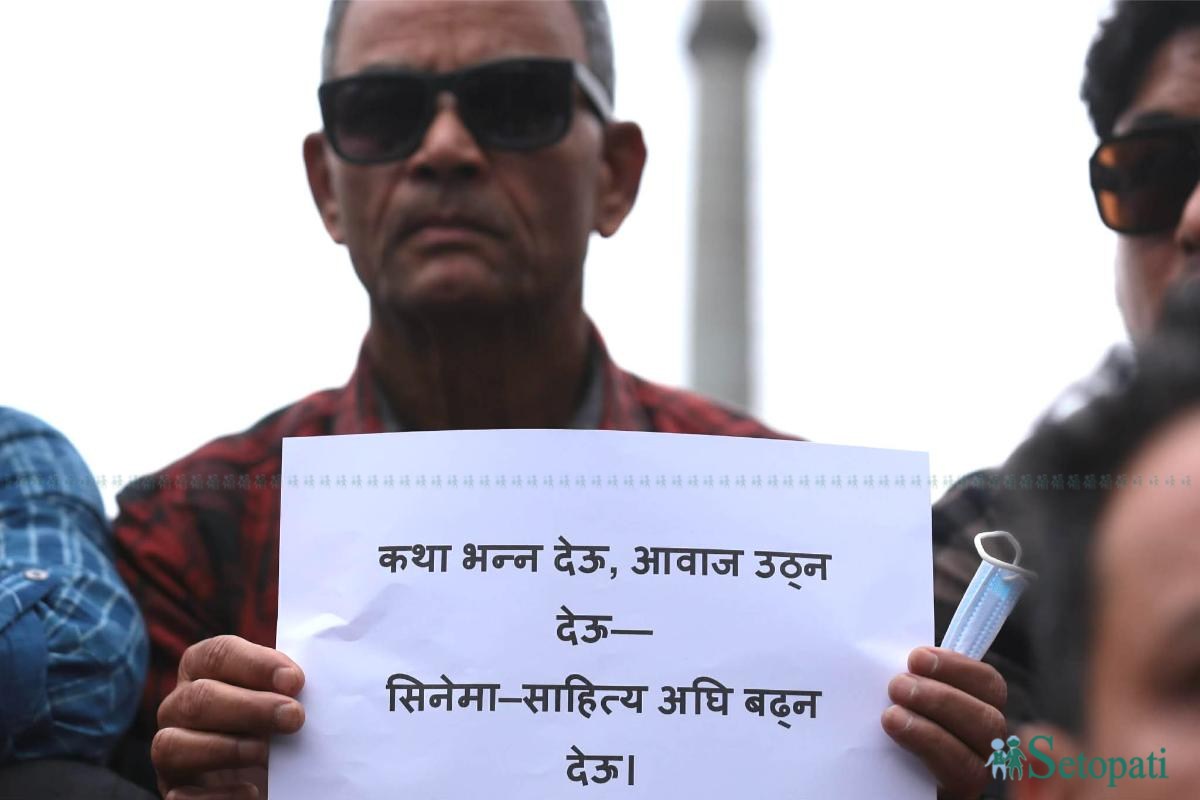 कथा भन्न देऊ, आवाज उठ्न
देऊ—
सिनेमा–साहित्य अघि बढ्न
देऊ।
Setopati